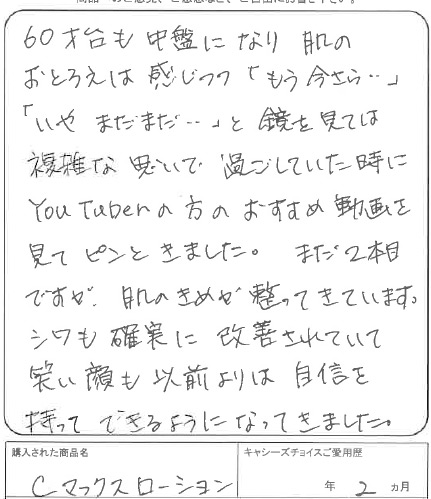 60才台も中盤になり 肌の
おとろえは感じつつ「もう今さら‥」
「いや まだまだ‥」と 鏡を見ては
複雑な思いで 過ごしていた時に
YouTuberの方のおすすめ動画を
見てピンときました。 まだ2本目
ですが、肌のきめが整ってきています。
シワも確実に改善されていて
笑い顔も以前よりは自信を
持ってできるようになってきました。
購入された商品名 キャシーズチョイスご愛用歴
Cマックスローション 年 2 カ月